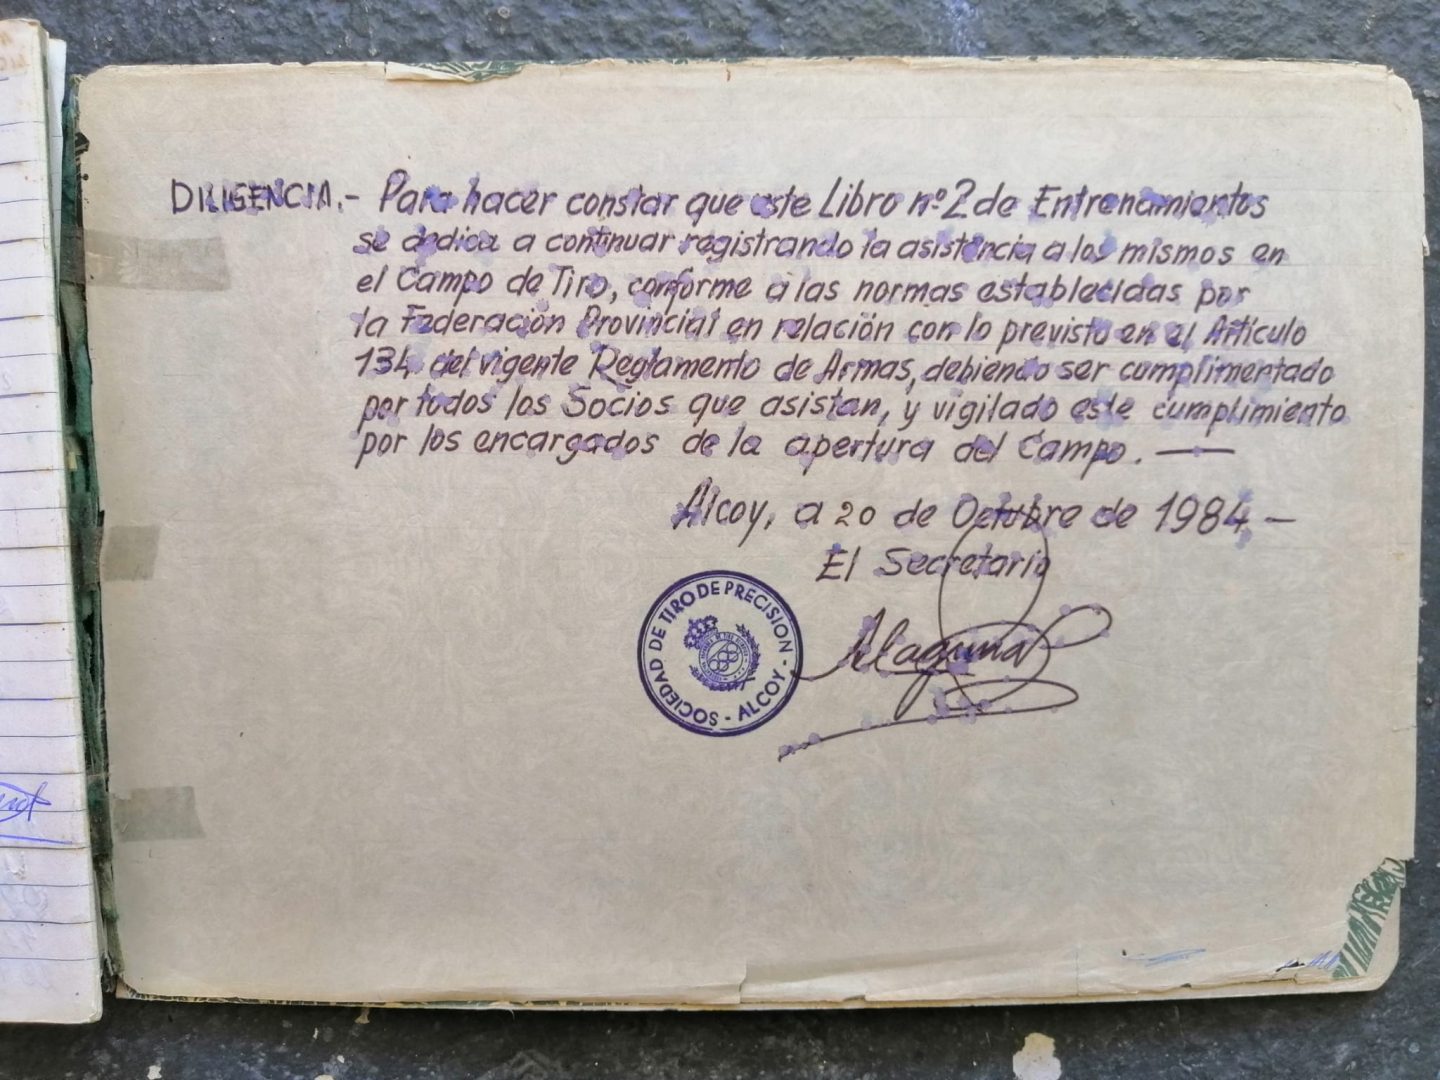 DILIGENCIA.- Para hacer constar que este Libro nº 2 de Entrenamientos
se dedica a continuar registrando la asistencia a los mismos en
el Campo de Tiro, conforme a las normas establecidas por
la Federación Provincial en relación con lo previsto en el Artículo
134 del vigente Reglamento de Armas, debiendo ser cumplimentado
por todos los Socios que asistan, y vigilado este cumplimiento
por los encargados de la apertura del Campo. —
Alcoy, a 20 de Octubre de 1984.-
El Secretario
SOCIEDAD DE TIRO DE PRECISION - ALCOY -